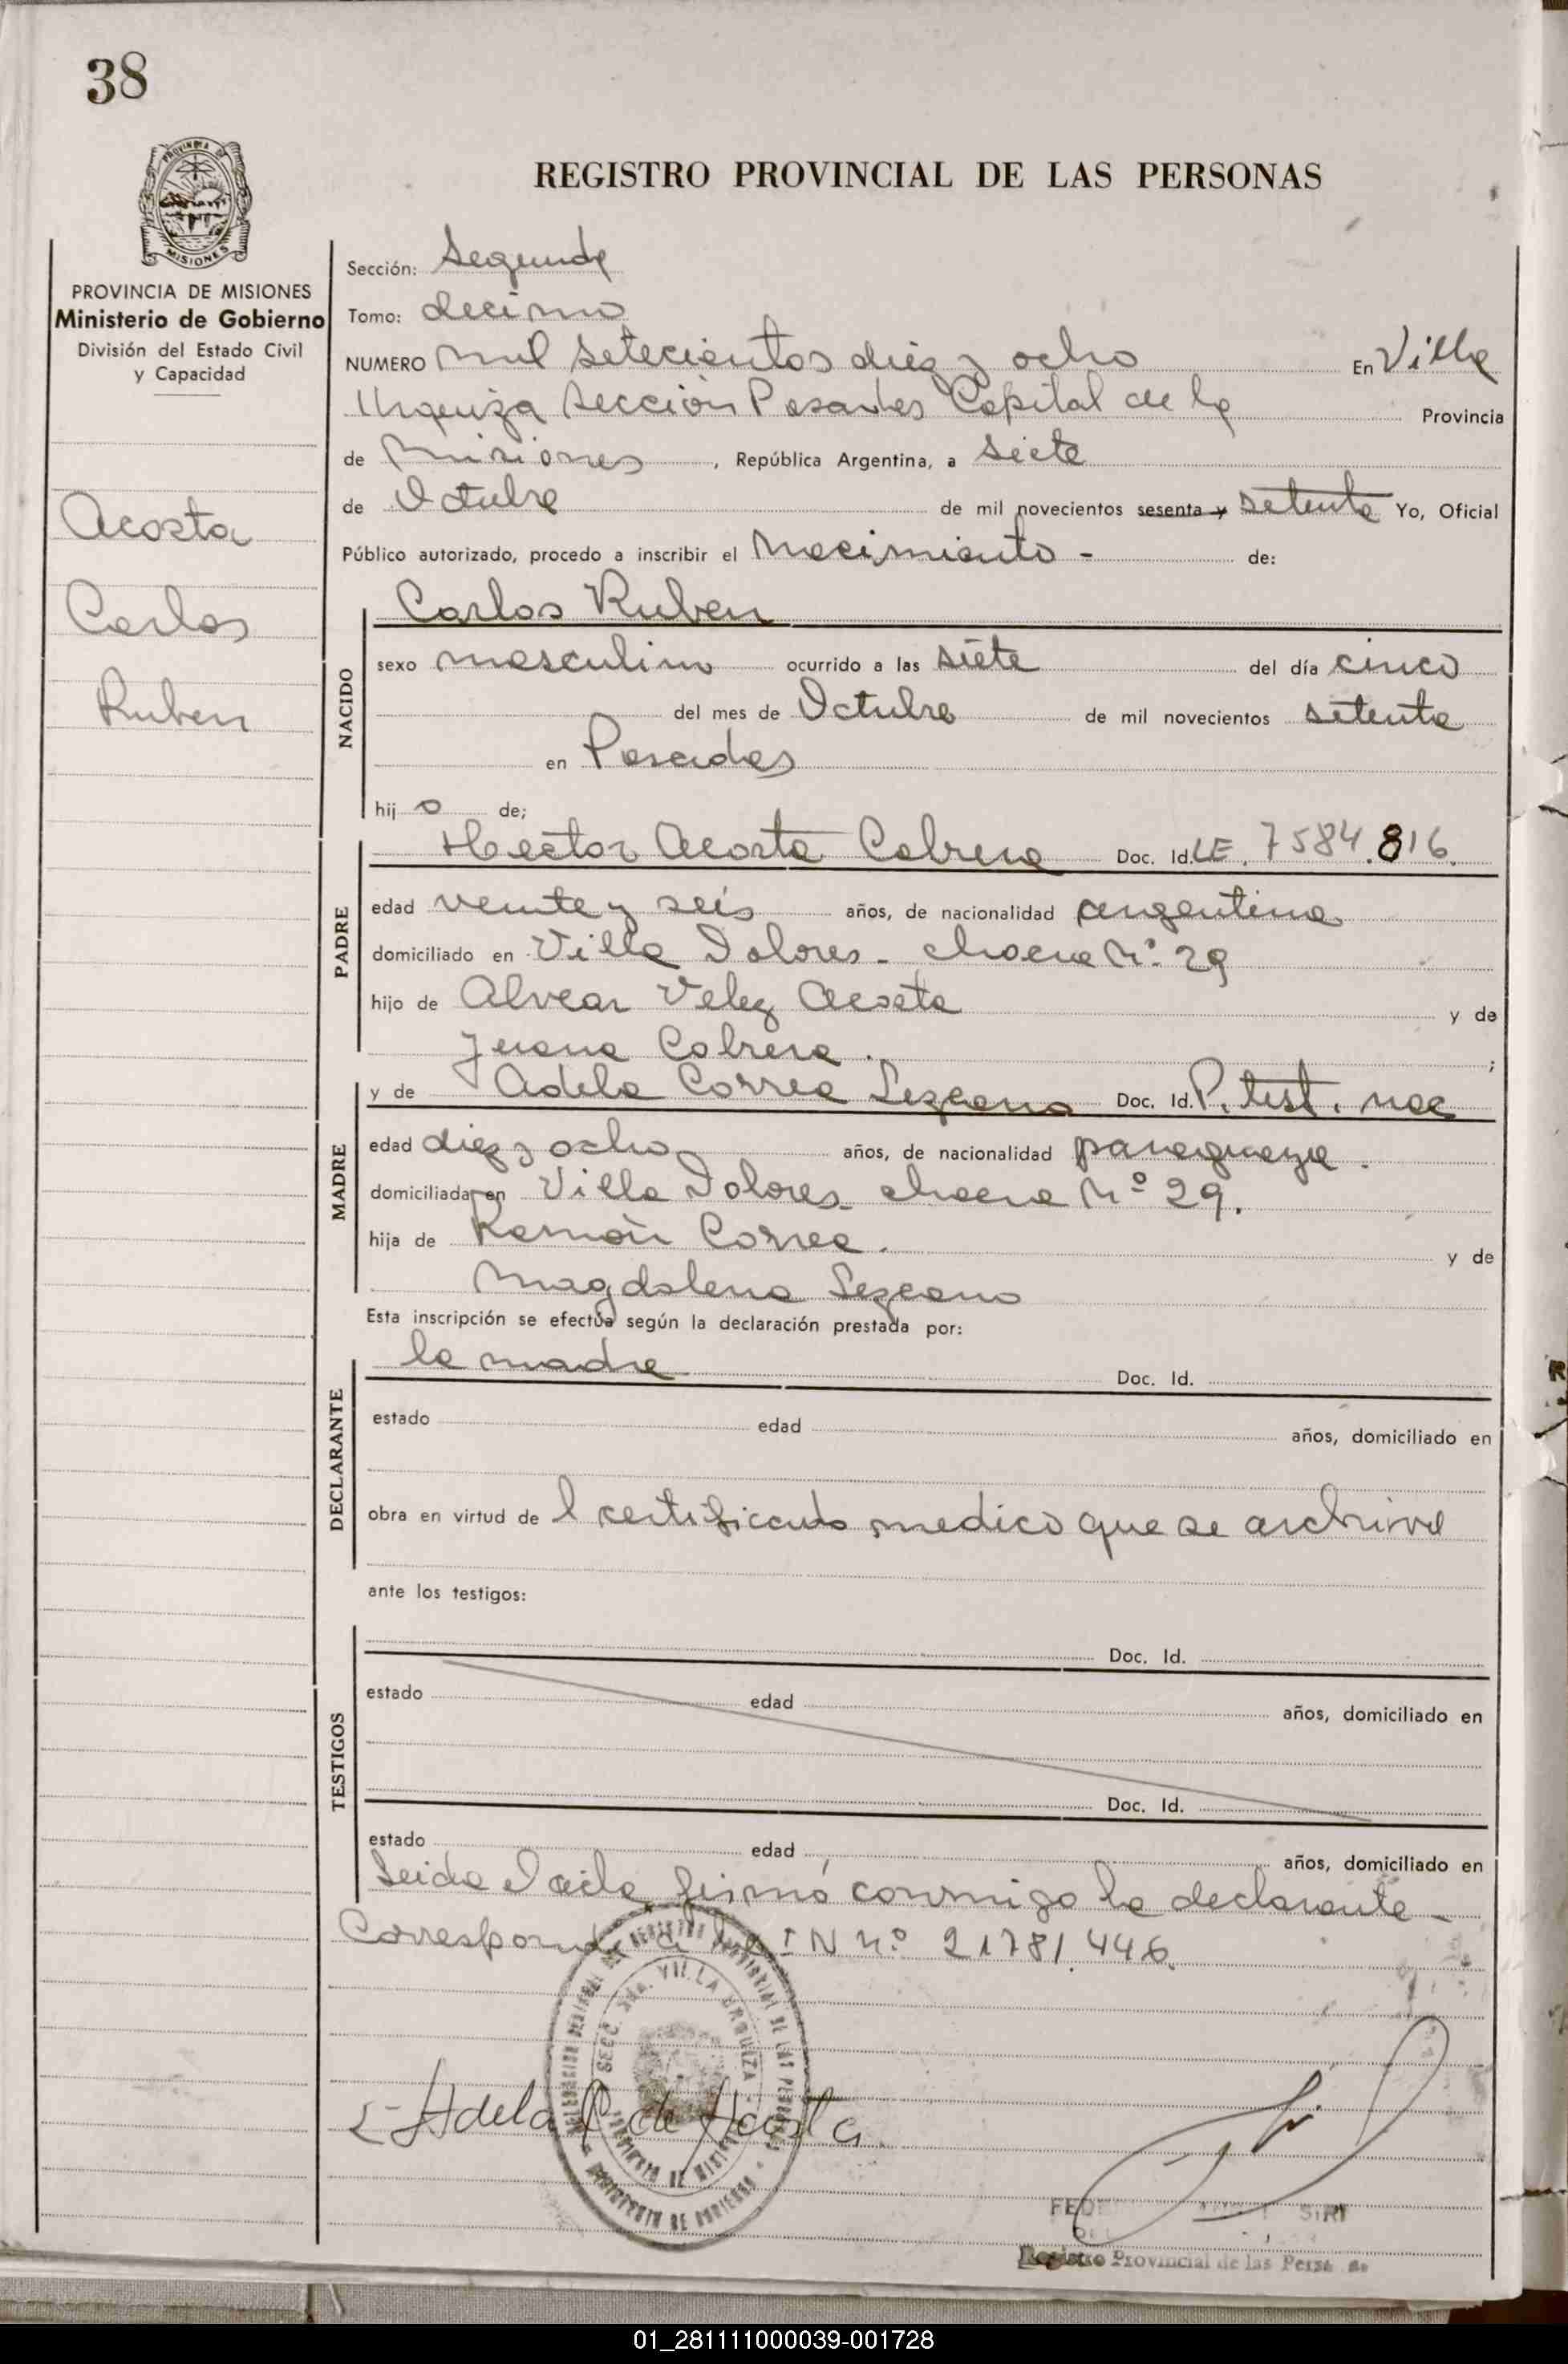 38
REGISTRO PROVINCIAL DE LAS PERSONAS
PROVINCIA DE MISIONES
Ministerio de Gobierno
División del Estado Civil
y Capacidad
Acosta
Carlos
Ruben
Sección: Segunda
Tomo: decimo
NUMERO mil setecientos diez y ocho En Villa
Urquiza Sección Posadas Capital de la Provincia
de Misiones, República Argentina, a siete
de Octubre de mil novecientos sesenta y setenta Yo, Oficial
Público autorizado, procedo a inscribir el Nacimiento - de:
Carlos Ruben
NACIDO
sexo masculino ocurrido a las siete del día cinco
del mes de Octubre de mil novecientos setenta
en Posadas
hijo de;
Hector Acosta Cabrera Doc. Id. LE. 7584.816.
PADRE
edad veinte y seis años, de nacionalidad argentina
domiciliado en Villa Dolores - chacra Nº 29
hijo de Alvear Velez Acosta y de
Juana Cabrera. ;
y de Adela Correa Lezcano Doc. Id. P. test. nac
MADRE
edad diez y ocho años, de nacionalidad paraguaya.
domiciliada en Villa Dolores - chacra Nº 29.
hija de Ramón Correa. y de
Magdalena Lezcano
Esta inscripción se efectúa según la declaración prestada por:
la madre Doc. Id.
DECLARANTE
estado edad años, domiciliado en
obra en virtud de l certificado medico que se archiva
ante los testigos:
Doc. Id.
TESTIGOS
estado edad años, domiciliado en
Doc. Id.
estado edad años, domiciliado en
Leida el acta, firmó conmigo la declarante -
Corresponde a la IN nº 21781.446.
SECC. 2da. VILLA URQUIZA
Adela C de Acosta.
SIRI
Registro Provincial de las
01_281111000039-001728